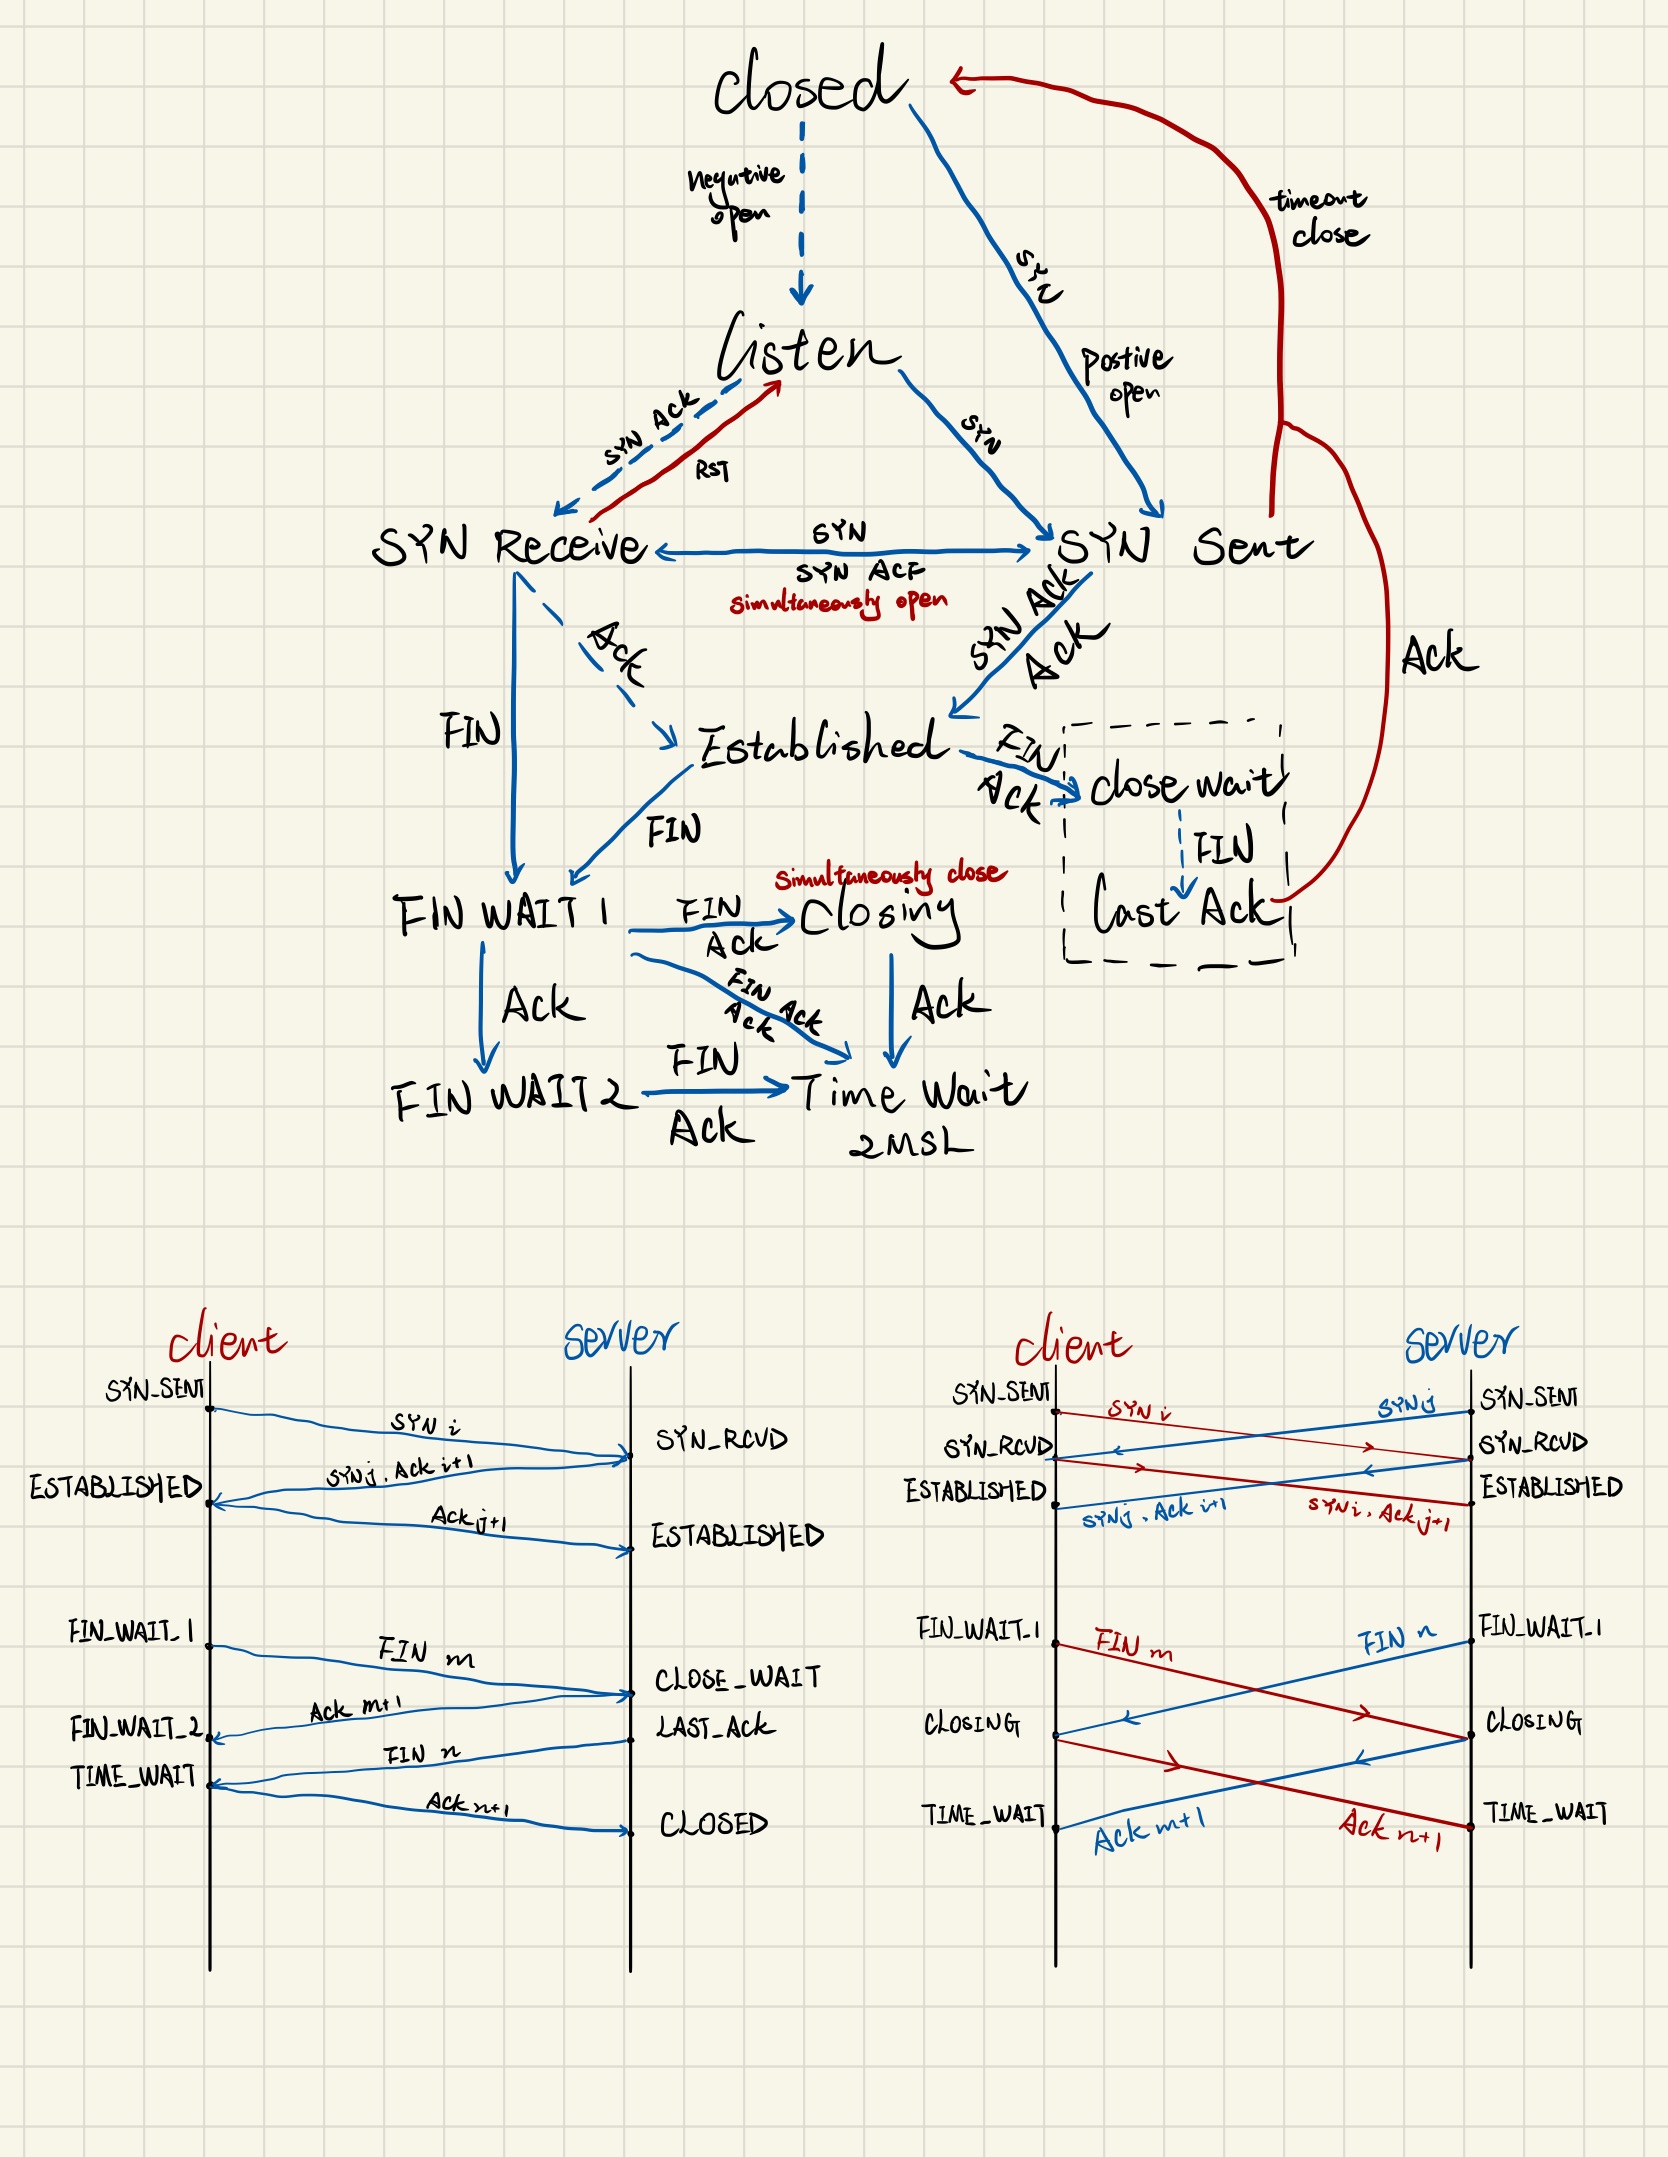 closed
Negative
open
timeout
close
SYN
Listen
Postive
open
SYN Ack
SYN
RST
SYN Receive
SYN
SYN ACF
Simultaneously open
SYN Sent
SYN Ack
Ack
Ack
Ack
FIN
Established
FIN
Ack
close wait
FIN
FIN
Simultaneously close
FIN WAIT 1
FIN
Ack
Closing
Last Ack
Ack
FIN Ack
Ack
Ack
FIN WAIT 2
FIN
Ack
Time Wait
2MSL
client
server
SYN_SENT
SYN i
SYN_RCVD
SYN j, Ack i+1
ESTABLISHED
Ack j+1
ESTABLISHED
FIN_WAIT_1
FIN m
CLOSE_WAIT
Ack m+1
FIN_WAIT_2
LAST_Ack
FIN n
TIME_WAIT
Ack n+1
CLOSED
client
server
SYN_SENT
SYN i
SYN j
SYN_SENT
SYN_RCVD
SYN_RCVD
ESTABLISHED
SYN j, Ack i+1
SYN i, Ack j+1
ESTABLISHED
FIN_WAIT_1
FIN m
FIN n
FIN_WAIT_1
CLOSING
CLOSING
TIME_WAIT
Ack m+1
Ack n+1
TIME_WAIT